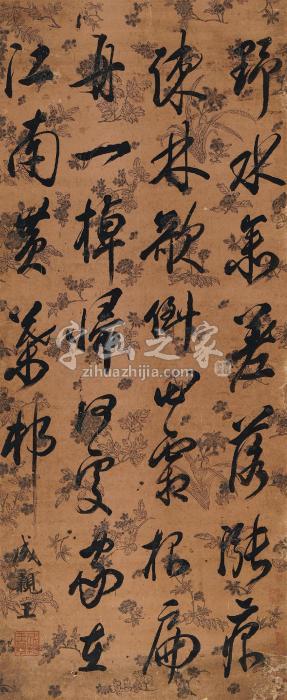 野水參差落漲痕
疎林欹倒出霜根扁
舟一棹歸何處家在
江南黄葉村
成親王
字画之家
zihuazhijia.com